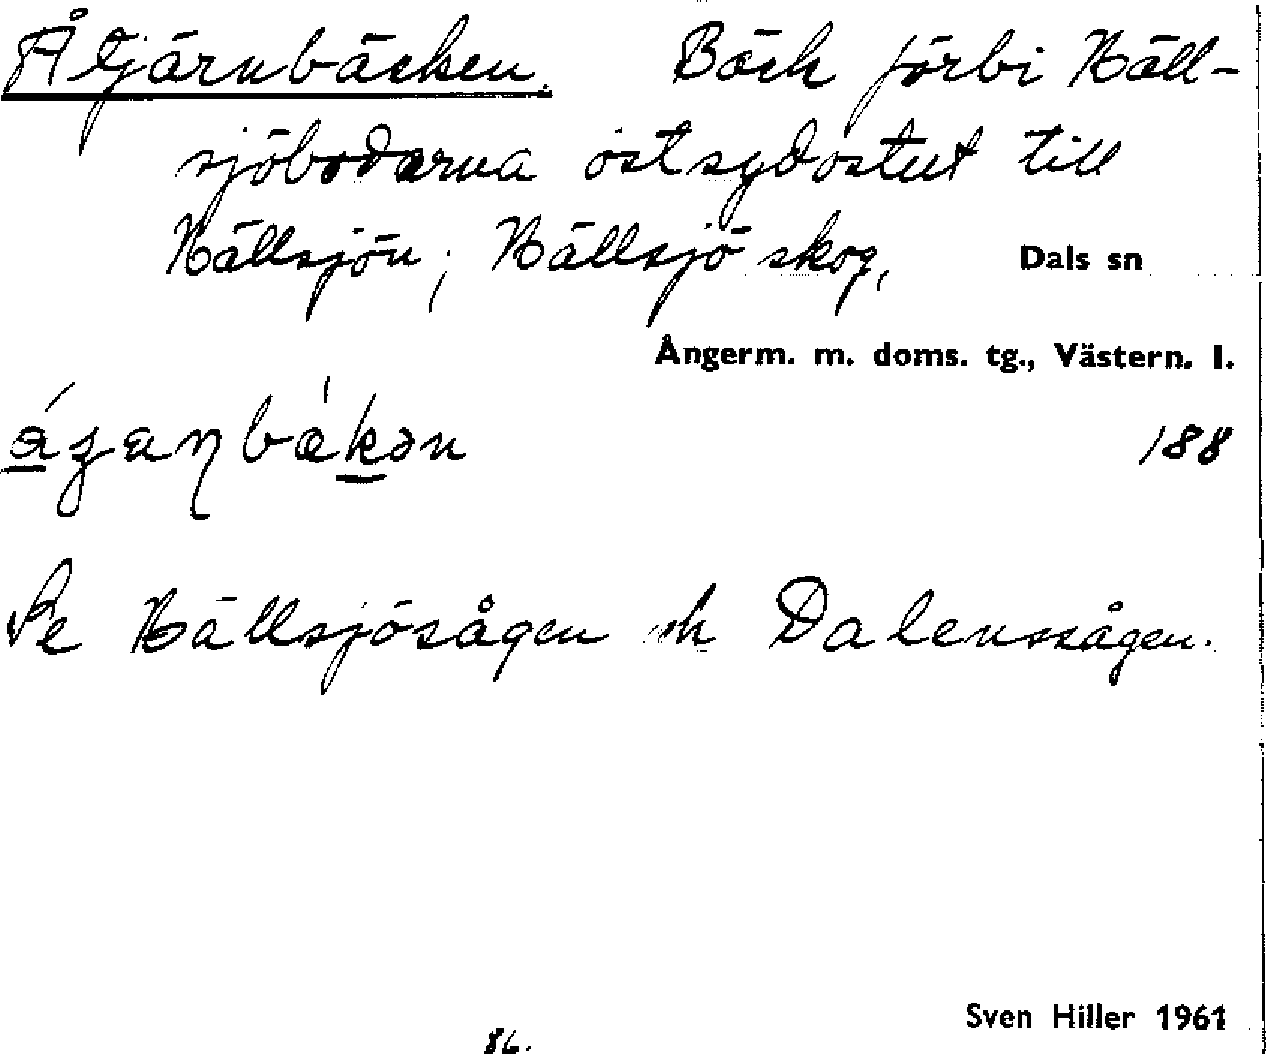 Åtjärnbäcken. Bäck förbi Häll-
sjöbodarna östsydostut till
Hällsjön; Hällsjö skog, Dals sn
Ångerm. m. doms. tg., Västern. l.
188
Se Hällsjösågen och Dalenssågen.
Sven Hiller 1961
86.